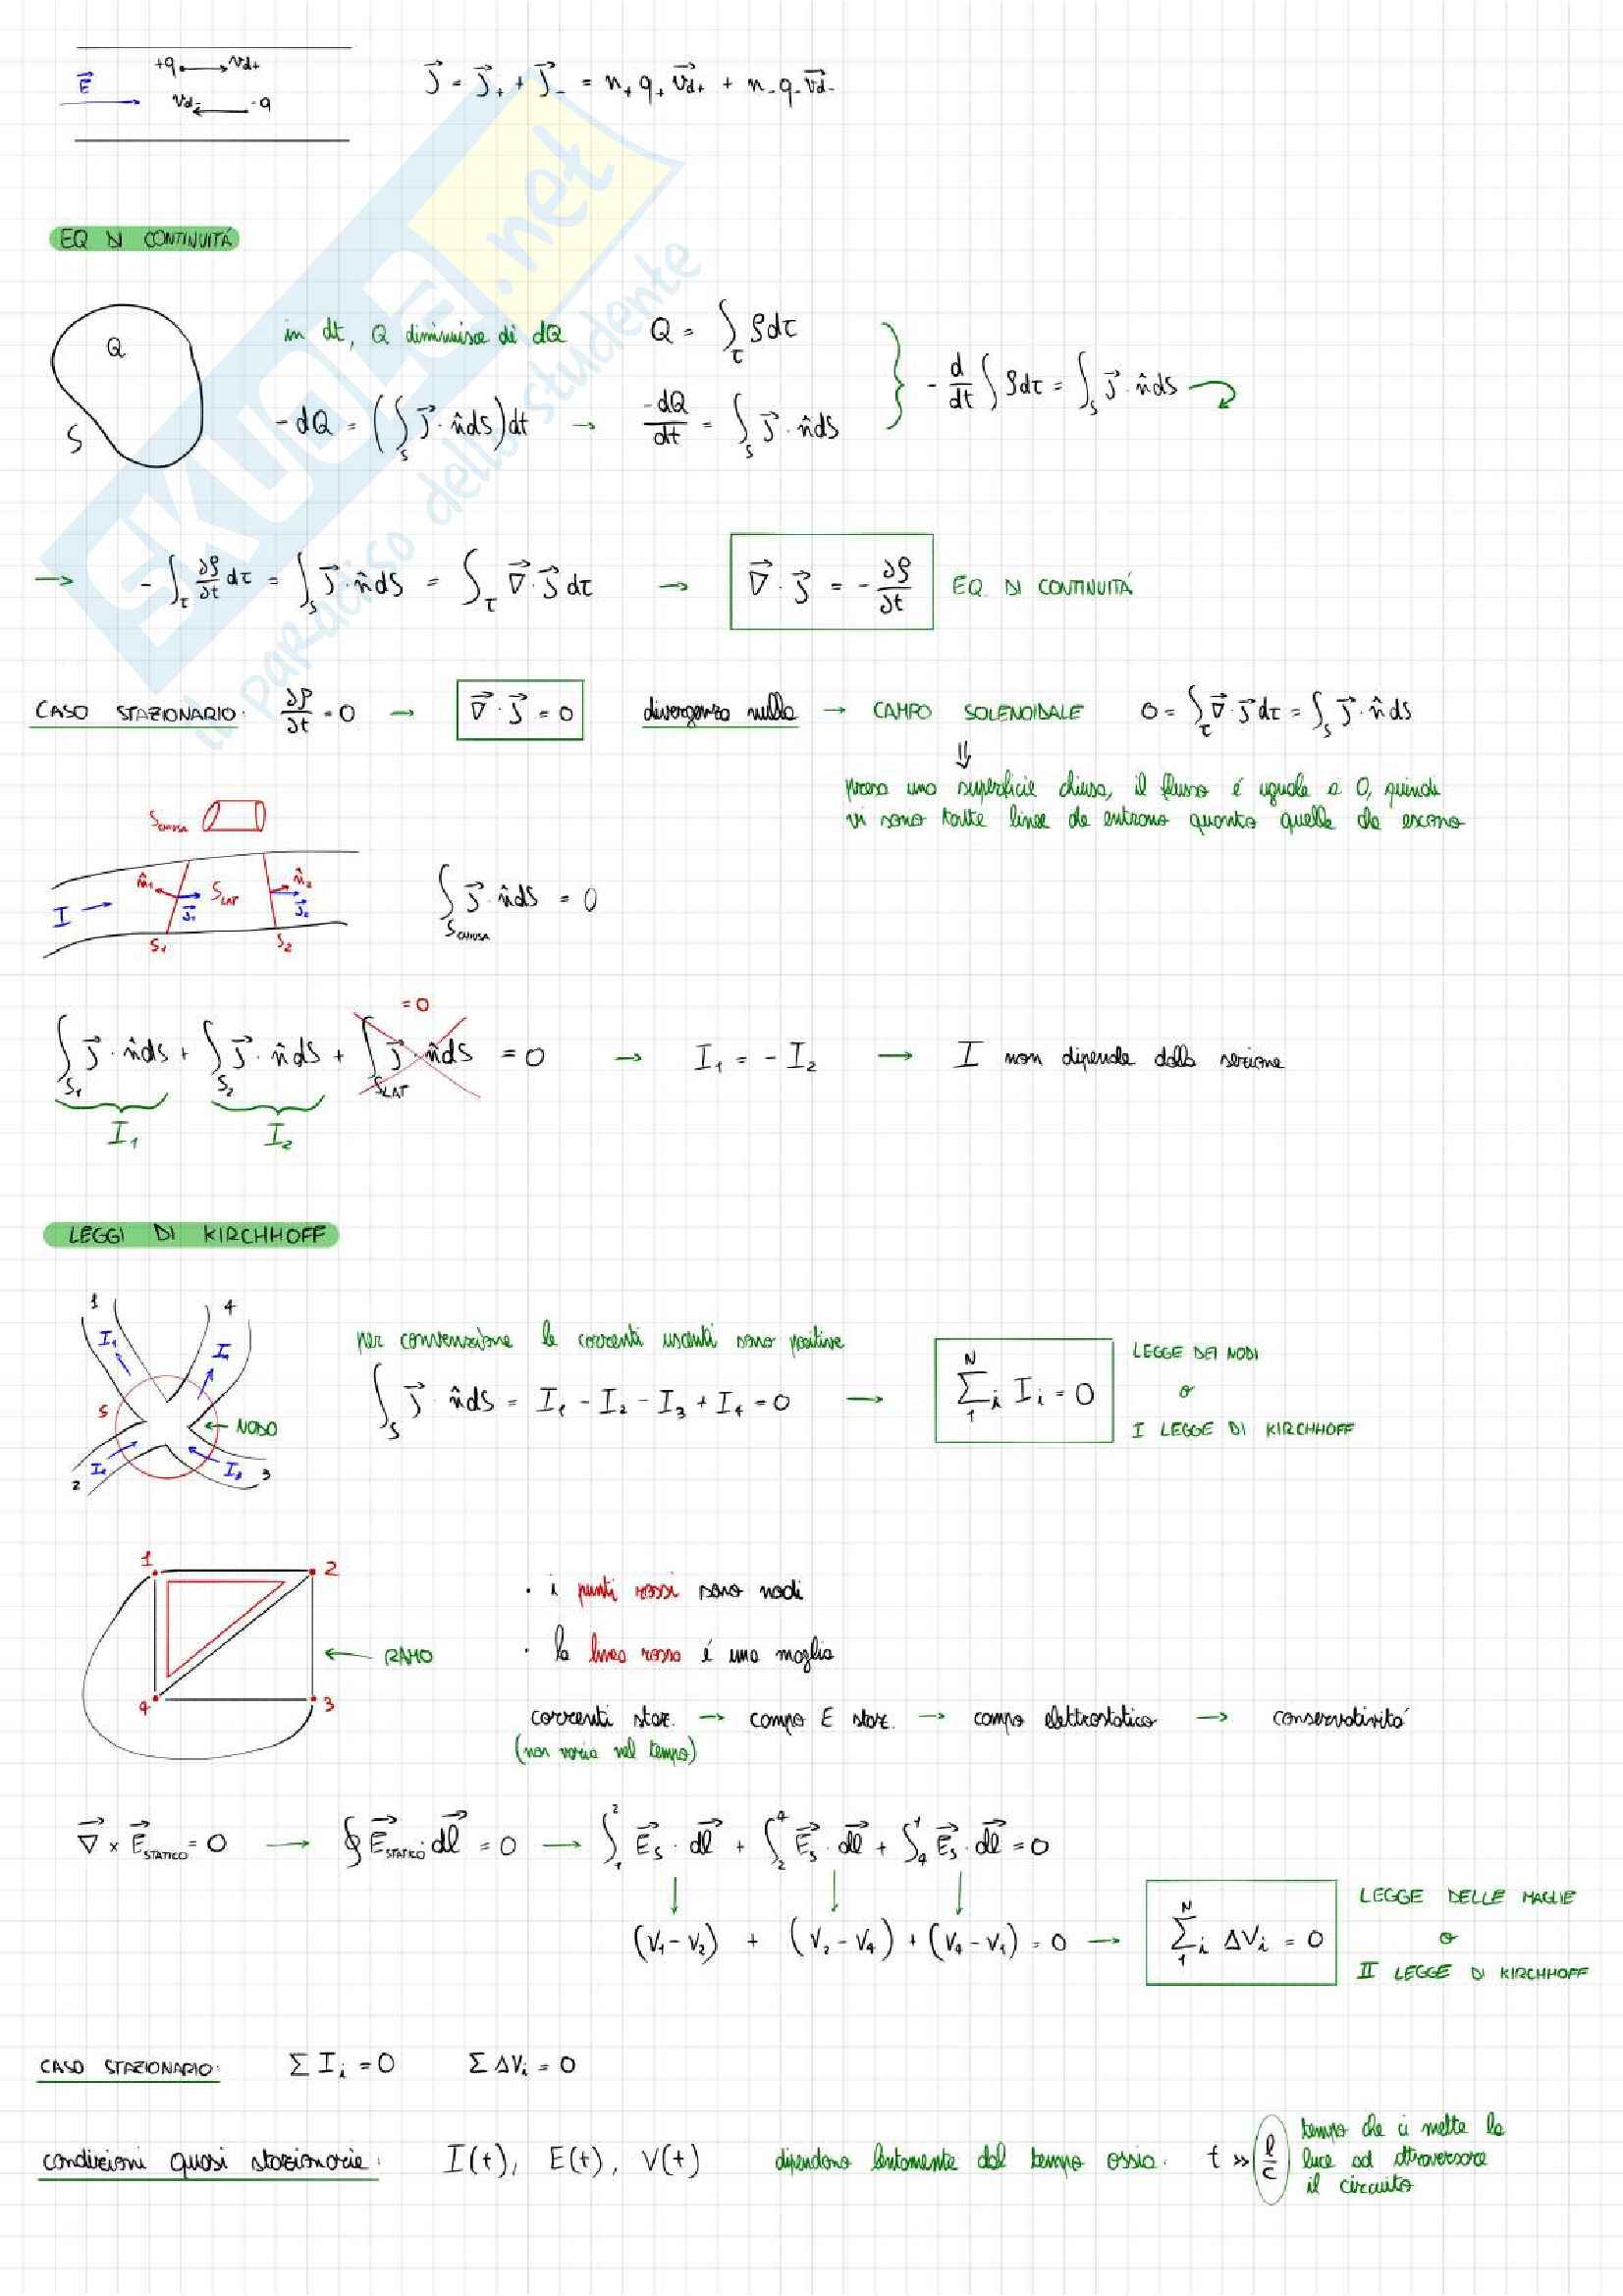 +q vd+
E⃗
vd- -q
J⃗ = J⃗₊ + J⃗₋ = n₊ q₊ v⃗d₊ + n₋ q₋ v⃗d₋
EQ DI CONTINUITÁ
Q
S
in dt, Q diminuisce di dQ
Q = ∫_τ ρdτ
-dQ = (∫_S J⃗ · n̂dS)dt → -dQ/dt = ∫_S J⃗ · n̂dS
- d/dt ∫ρdτ = ∫_S J⃗ · n̂dS
→ -∫_τ ∂ρ/∂t dτ = ∫_S J⃗ · n̂dS = ∫_τ ∇⃗ · J⃗ dτ → ∇⃗ · J⃗ = -∂ρ/∂t EQ. DI CONTINUITÁ
CASO STAZIONARIO: ∂ρ/∂t = 0 → ∇⃗ · J⃗ = 0 divergenza nulla → CAMPO SOLENOIDALE 0 = ∫_τ ∇⃗ · J⃗ dτ = ∫_S J⃗ · n̂dS
⇓
presa una superficie chiusa, il flusso é uguale a 0, quindi
vi sono tante linee che entrano quanto quelle che escono
S_CHIUSA
n̂₁ S_LAT n̂₂
I → J⃗₁ J⃗₂
S₁ S₂
∫_S_CHIUSA J⃗ · n̂dS = 0
= 0
∫_S₁ J⃗ · n̂dS + ∫_S₂ J⃗ · n̂dS + ∫_S_LAT J⃗ · n̂dS = 0 → I₁ = - I₂ → I non dipende dalla sezione
I₁ I₂
LEGGI DI KIRCHHOFF
1 4
I₁ I₄
S
NODO
I₂ I₃
2 3
per convenzione le correnti uscenti sono positive
∫_S J⃗ · n̂dS = I₁ - I₂ - I₃ + I₄ = 0 → Σ₁ᴺᵢ Iᵢ = 0
LEGGE DEI NODI
o
I LEGGE DI KIRCHHOFF
1 2
4 3
← RAMO
· i punti rossi sono nodi
· la linea rossa é una maglia
correnti staz. → campo E staz. → campo elettrostatico → conservativitá
(non varia nel tempo)
∇⃗ × E⃗_STATICO = 0 → ∮ E⃗_STATICO · dl⃗ = 0 → ∫₁² E⃗s · dl⃗ + ∫₂⁴ E⃗s · dl⃗ + ∫₄¹ E⃗s · dl⃗ = 0
(V₁ - V₂) + (V₂ - V₄) + (V₄ - V₁) = 0 → Σ₁ᴺᵢ ΔVᵢ = 0
LEGGE DELLE MAGLIE
o
II LEGGE DI KIRCHHOFF
CASO STAZIONARIO: Σ Iᵢ = 0 Σ ΔVᵢ = 0
condizioni quasi stazionarie: I(t), E(t), V(t) dipendono lentamente dal tempo ossia: t >> l/c
tempo che ci mette la
luce ad attraversare
il circuito
SKUOLA.net
il paradiso dello studente